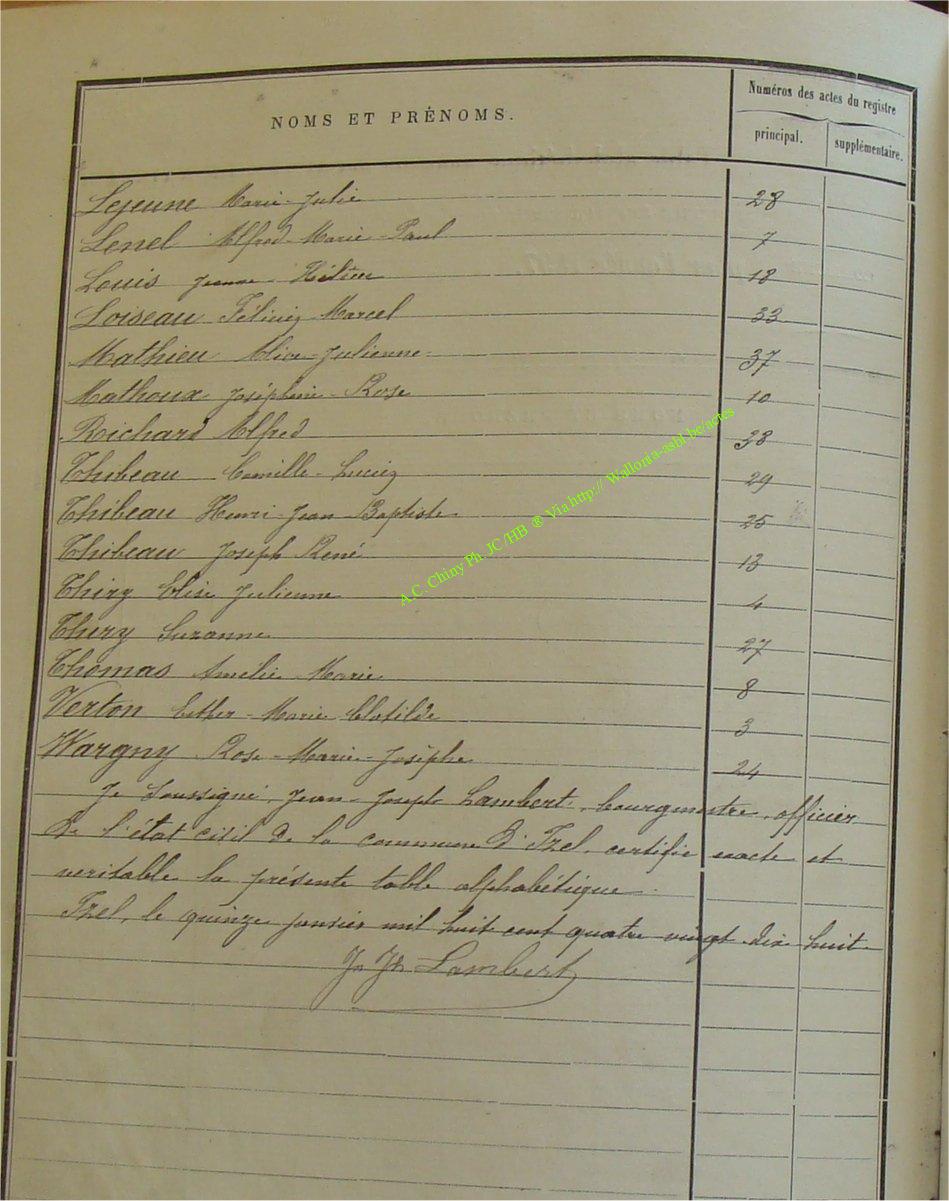 NOMS ET PRÉNOMS.
Numéros des actes du registre
principal.
supplémentaire.
Lejeune Marie-Julie 28
Lenel Alfred-Marie-Paul 7
Louis Jeanne- 18
Loiseau Félicien Marcel 33
Mathieu Alice-Julienne 37
Mathoux Joséphine-Rose 10
Richard Alfred 38
Thibeau Camille-Lucien 29
Thibeau Henri-Jean-Baptiste 25
Thibeau Joseph René 13
Thiry Elise Julienne 4
Thiry Suzanne 27
Thomas Amélie Marie 8
Verton Esther-Marie Clotilde 3
Wargny Rose-Marie-Josèphe 24
Je soussigné, Jean-Joseph Lambert, bourgmestre, officier
de l'état civil de la commune d'Izel, certifie exacte et
veritable la présente table alphabétique.
Izel, le quinze janvier mil huit cent quatre vingt dix huit
J. Jh Lambert
A.C. Chiny Ph. JC/HB ® Via http:// Wallonia-asbl.be/actes